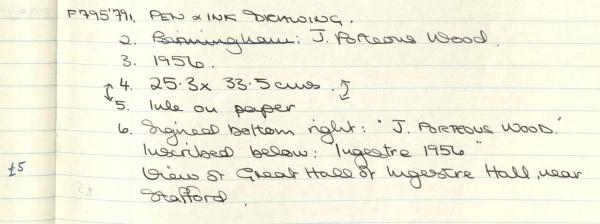 P795'79 1. PEN & INK DRAWING.
2. Birmingham: J. Porteous Wood.
3. 1956.
4. 25.3 x 33.5 cms.
5. Ink on paper
6. Signed bottom right: "J. PORTEOUS WOOD."
Inscribed below: Ingestre 1956"
£5 View of Great Hall of Ingestre Hall, near
Stafford.